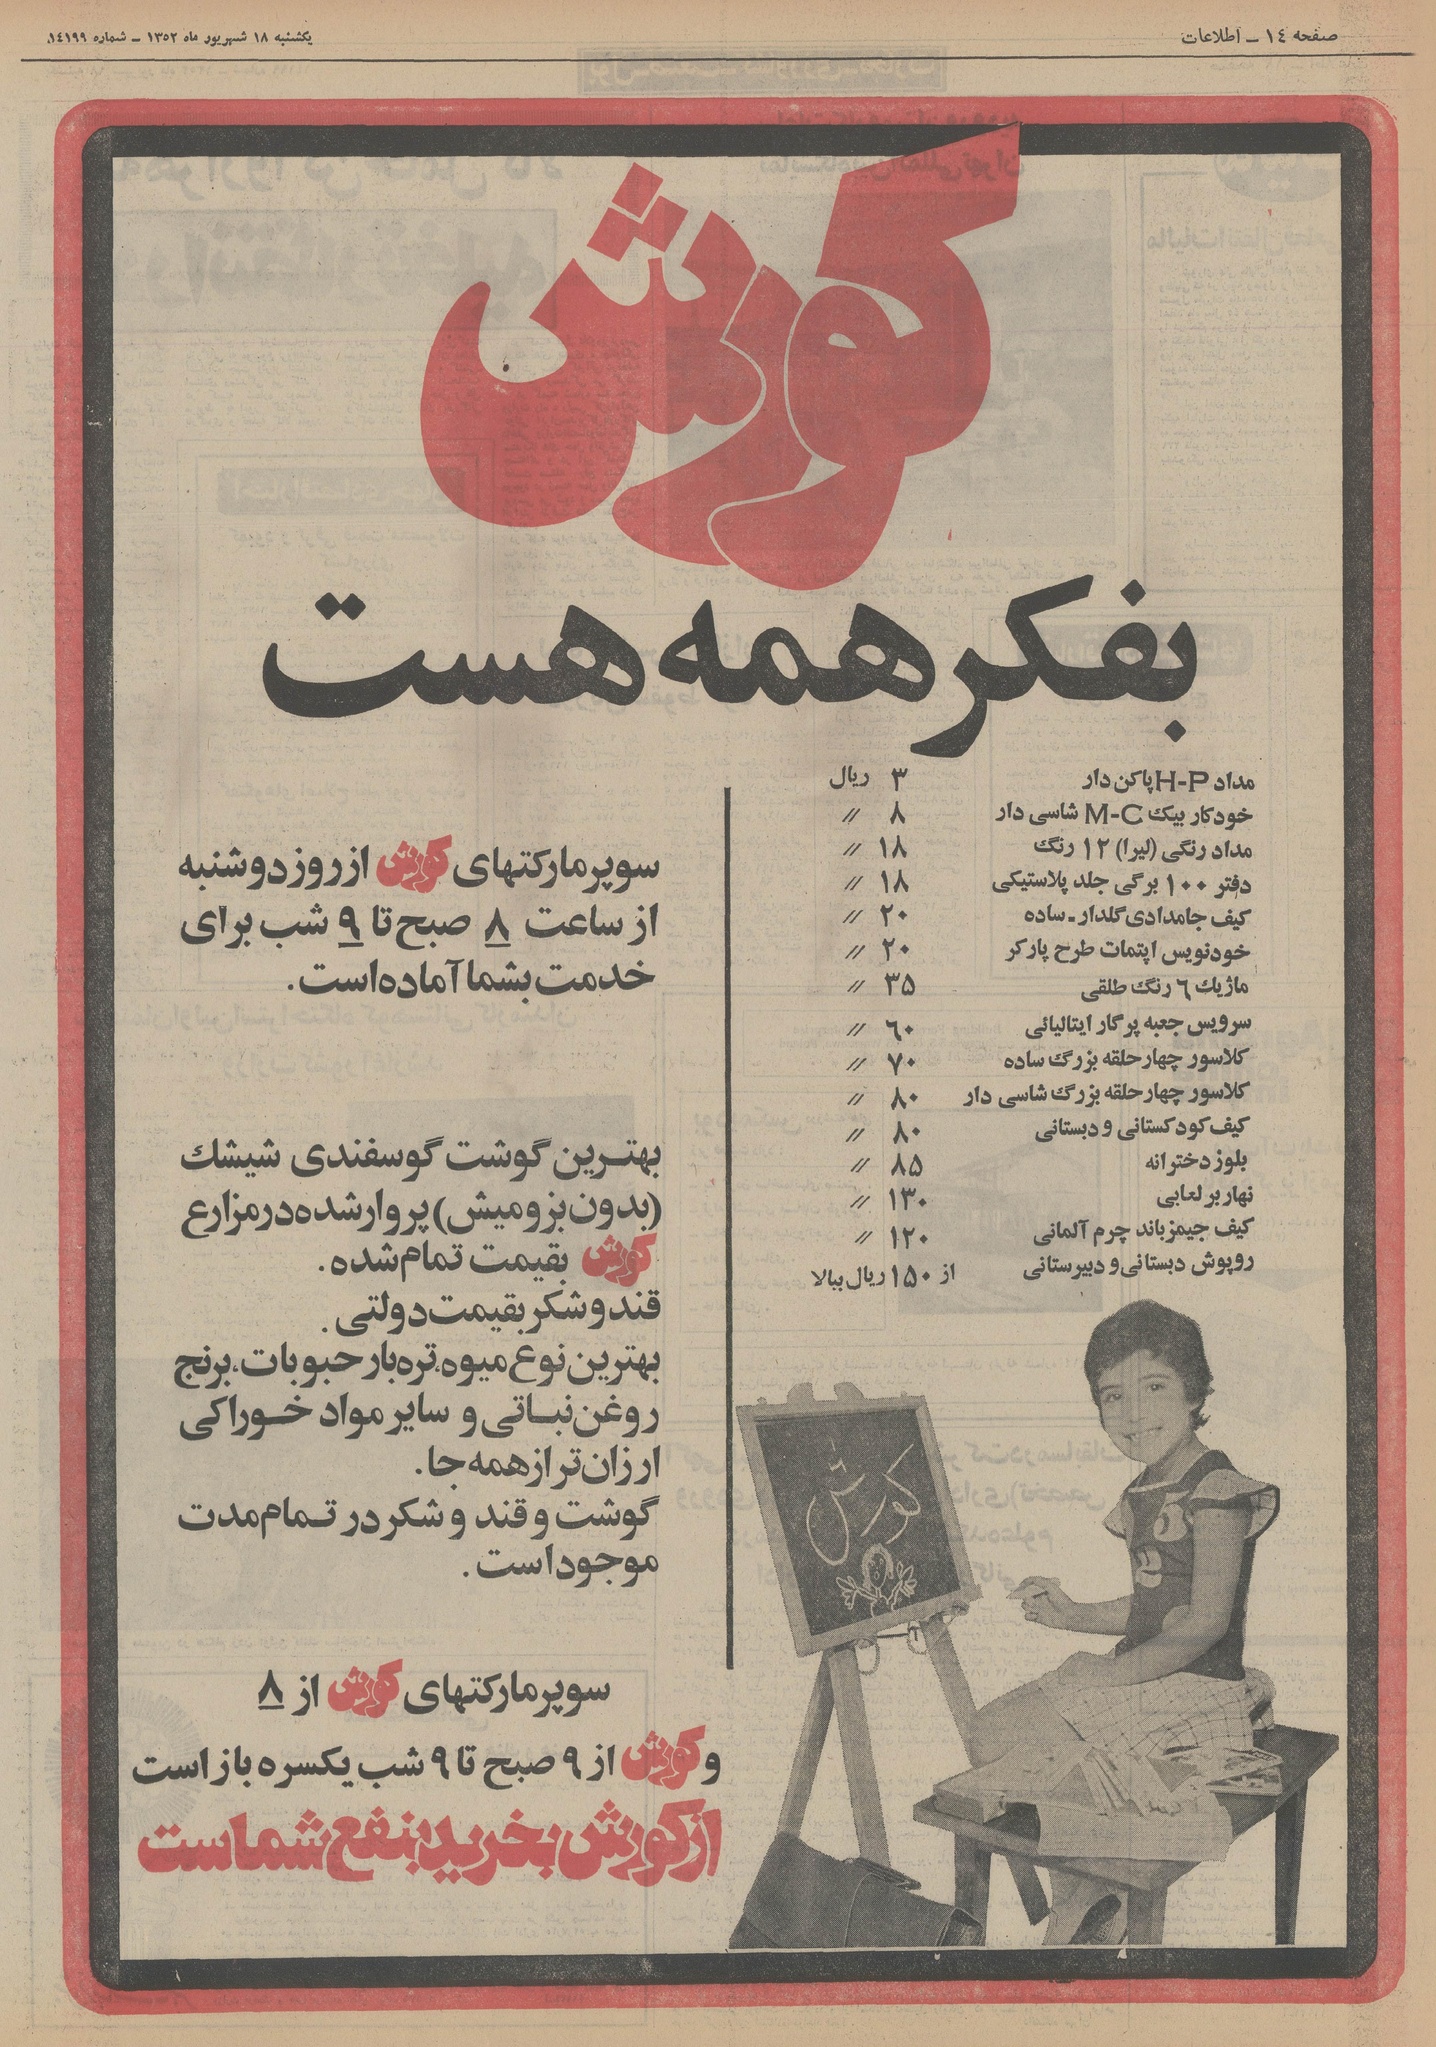 صفحه ۱۴ ـ اطلاعات
یکشنبه ۱۸ شهریور ماه ۱۳۵۲ ـ شماره ۱٤۱۹۹
کورش
بفکر همه هست
مداد H-P پاکن دار ۳ ریال
خودکار بیک M-C شاسی دار ۸ //
مداد رنگی (لیرا) ۱۲ رنگ ۱۸ //
دفتر ۱۰۰ برگی جلد پلاستیکی ۱۸ //
کیف جامدادی گلدار ـ ساده ۲۰ //
خودنویس اپتمات طرح پارکر ۲۰ //
ماژیک ٦ رنگ طلقی ۳۵ //
سرویس جعبه پرگار ایتالیائی ٦۰ //
کلاسور چهار حلقه بزرگ ساده ۷۰ //
کلاسور چهار حلقه بزرگ شاسی دار ۸۰ //
کیف کودکستانی و دبستانی ۸۰ //
بلوز دخترانه ۸۵ //
نهاربر لعابی ۱۳۰ //
کیف جیمزباند چرم آلمانی ۱۲۰ //
روپوش دبستانی و دبیرستانی از ۱۵۰ ریال ببالا
سوپرمارکتهای کورش از روز دوشنبه
از ساعت ۸ صبح تا ۹ شب برای
خدمت بشما آماده است.
بهترین گوشت گوسفندی شیشک
(بدون بز و میش) پروار شده در مزارع
کورش بقیمت تمام شده.
قند و شکر بقیمت دولتی.
بهترین نوع میوه، تره بار حبوبات، برنج
روغن نباتی و سایر مواد خوراکی
ارزان تر از همه جا.
گوشت و قند و شکر در تمام مدت
موجود است.
کورش
سوپرمارکتهای کورش از ۸
و کورش از ۹ صبح تا ۹ شب یکسره باز است
از کورش بخرید بنفع شماست